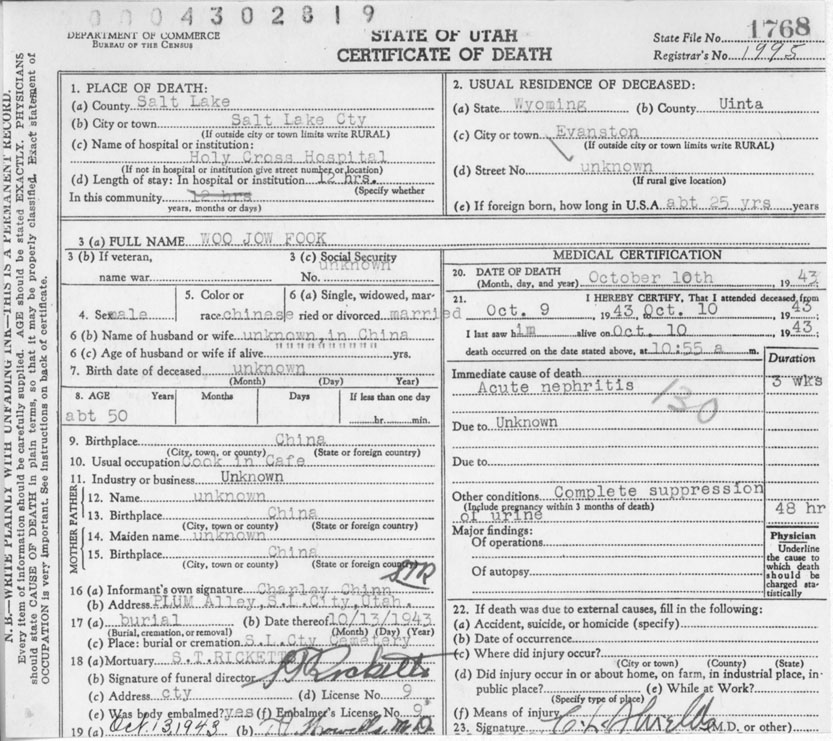 0004302819
DEPARTMENT OF COMMERCE
BUREAU OF THE CENSUS
STATE OF UTAH
CERTIFICATE OF DEATH
State File No. 1768
Registrar's No. 1995
N. B.—WRITE PLAINLY WITH UNFADING INK—THIS IS A PERMANENT RECORD.
Every item of information should be carefully supplied. AGE should be stated EXACTLY. PHYSICIANS
should state CAUSE OF DEATH in plain terms, so that it may be properly classified. Exact statement of
OCCUPATION is very important. See instructions on back of certificate.
1. PLACE OF DEATH:
(a) County Salt Lake
(b) City or town Salt Lake Cty
(If outside city or town limits write RURAL)
(c) Name of hospital or institution:
Holy Cross Hospital
(If not in hospital or institution give street number or location)
(d) Length of stay: In hospital or institution 12 hrs.
(Specify whether
In this community 12 hrs
years, months or days)
2. USUAL RESIDENCE OF DECEASED:
(a) State Wyoming (b) County Uinta
(c) City or town Evanston
(If outside city or town limits write RURAL)
(d) Street No. unknown
(If rural give location)
(e) If foreign born, how long in U.S.A abt 25 yrs years
3 (a) FULL NAME WOO JOW FOOK
3 (b) If veteran,
name war
3 (c) Social Security
No. unknown
4. Sex male
5. Color or
race chinese
6 (a) Single, widowed, mar-
ried or divorced married
6 (b) Name of husband or wife unknown, in China
6 (c) Age of husband or wife if alive """""""""""" yrs.
7. Birth date of deceased unknown
(Month) (Day) Year)
8. AGE Years Months Days If less than one day
abt 50 hr. min.
9. Birthplace China
(City, town, or county) (State or foreign country)
10. Usual occupation Cook in Cafe
11. Industry or business Unknown
FATHER
12. Name unknown
13. Birthplace China
(City, town or county) (State or foreign country)
MOTHER
14. Maiden name unknown
15. Birthplace China
(City, town or county) (State or foreign country)
STR
16 (a) Informant's own signature Charley Chinn
(b) Address PLUM Alley, S.L.City, Utah.
17 (a) burial (b) Date thereof 10/13/1943
(Burial, cremation, or removal) (Month) (Day) (Year)
(c) Place: burial or cremation S.L.Cty Cemetery
18 (a) Mortuary S.T.RICKETTS
(b) Signature of funeral director S T Ricketts
(c) Address cty (d) License No. 9
(e) Was body embalmed? yes (f) Embalmer's License No. 9
19 (a) Oct. 13, 1943 (b) M.D.
MEDICAL CERTIFICATION
20. DATE OF DEATH
(Month, day, and year) October 10th 1943
21. I HEREBY CERTIFY, That I attended deceased from
Oct. 9 1943, to Oct. 10 1943
I last saw him alive on Oct. 10 1943
death occurred on the date stated above, at 10:55 a m.
Duration
Immediate cause of death
Acute nephritis 3 wks
130
Due to Unknown
Due to
Other conditions Complete suppression
(Include pregnancy within 3 months of death)
of urine 48 hr
Major findings:
Of operations
Of autopsy
Physician
Underline
the cause to
which death
should be
charged sta-
tistically
22. If death was due to external causes, fill in the following:
(a) Accident, suicide, or homicide (specify)
(b) Date of occurrence
(c) Where did injury occur?
(City or town) (County) (State)
(d) Did injury occur in or about home, on farm, in industrial place, in-
public place? (e) While at Work?
(Specify type of place)
(f) Means of injury
23. Signature C. L. Shields (M.D. or other)